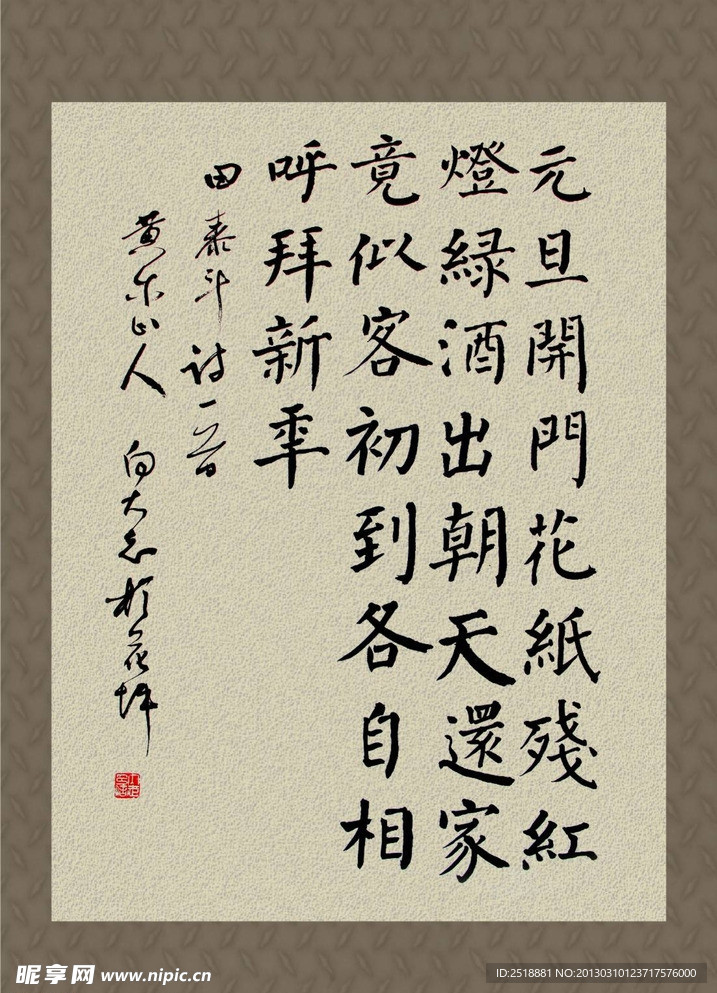 元旦開門花紙殘紅
燈綠酒出朝天還家
竟似客初到各自相
呼拜新年
田泰斗詩一首
黃尔山人 向大志於花坪
昵享网 www.nipic.cn
ID:2518881 NO:20130310123717576000